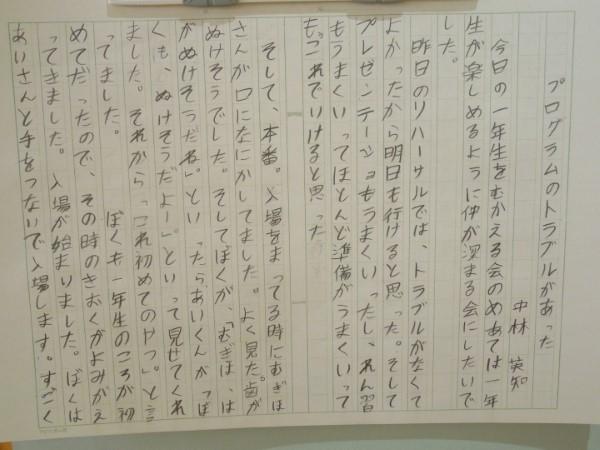 プログラムのトラブルがあった
中林 英知
今日の一年生をむかえる会のめあては一年
生が楽しめるように仲が深まる会にしたいで
した。
昨日のリハーサルでは、トラブルがなくて
よかったから明日も行けると思った。そして
プレゼンテーショもうまくいったし、れん習
もうまくいってほとんど準備がうまくいって
も、「これでいけると思った
そして、本番。入場をまってる時にむぎは
さんが口になにかしてました。よく見た。歯が
ぬけそうでした。そしてぼくが、「むぎは、は
がぬけそうだね。」といったらあいくんが「ぼ
くも、ぬけそうだよー」といって見せてくれ
ました。それから「これ初めてのやつ」と言
ってました。
ぼくも一年生のころが初
めてだったので、その時のきおくがよみがえ
ってきました。入場が始まりました。ぼくは
あいさんと手をつないで入場します。すごく